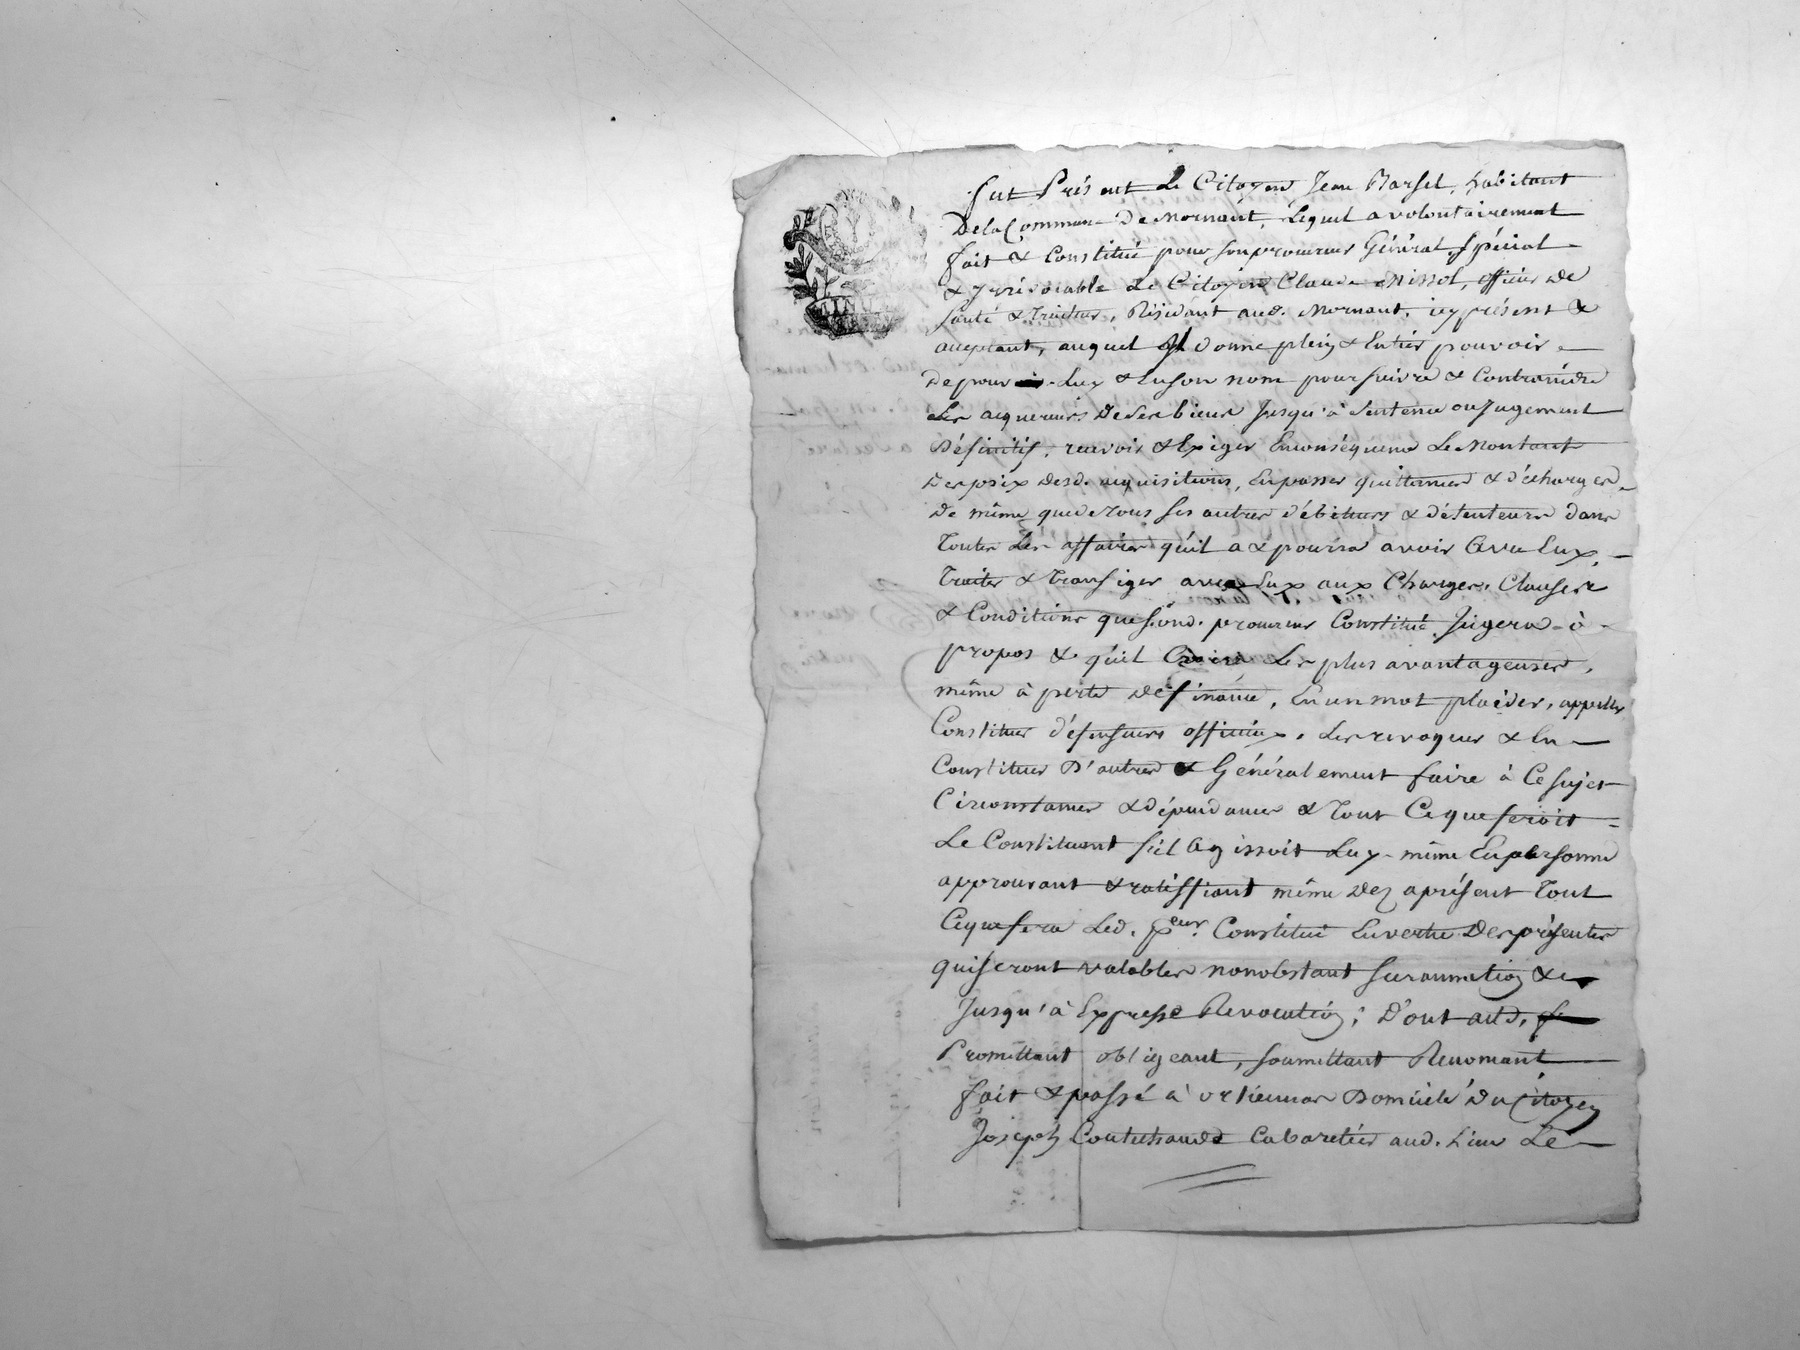 fut Présent Le Citoyen Jean Barsel, habitant
De la Commune De Mornant, Lequel a volontairement
fait & Constitué pour son procureur Général Spécial
& yrrévocable Le Citoyen Claude Missol, officier De
Santé & Traiteur, Résidant aud. Mornant, icy présent &
acceptant, auquel Il donne plein & Entier pouvoir
De pour Luy & En son nom poursuivre & Contraindre
Les acquereurs De Ses biens Jusqu'à Sentence ou Jugement
Définitif, recevoir & Exiger En conséquence Le Montant
Des prix Desd. acquisitions, En passer quittances & décharges,
De même que de Tous ses autres débiteurs & détenteurs dans
Toutes Les affaires qu'il a & pourra avoir Avec Eux,
Traiter & Transiger avec Eux aux Charges, Clauses
& Conditions que Sond. procureur Constitué Jugera à
propos & qu'il Croira Les plus avantageuses,
même à perte De finance, En un mot plaider, appeller
Constituer défenseurs officieux, Les revoquer & En
Constituer D'autres & Généralement faire à Ce Sujet
Circonstances & dépendances & Tout Ce que feroit
Le Constituant s'il Agissoit Luy-même En personne
approuvant & ratiffiant même Dez aprésent Tout
Ce que fera Led. peur. Constitué En vertu Des présentes
qui seront valables nonobstant Surannation &
Jusqu'à Expresse Revocation; D'ont acte,
Promettant obligeant, soumettant Renonçant
fait & passé à Orliennas Domicile Du Citoyen
Joseph Coutechaude Cabaretier aud. Lieu Le